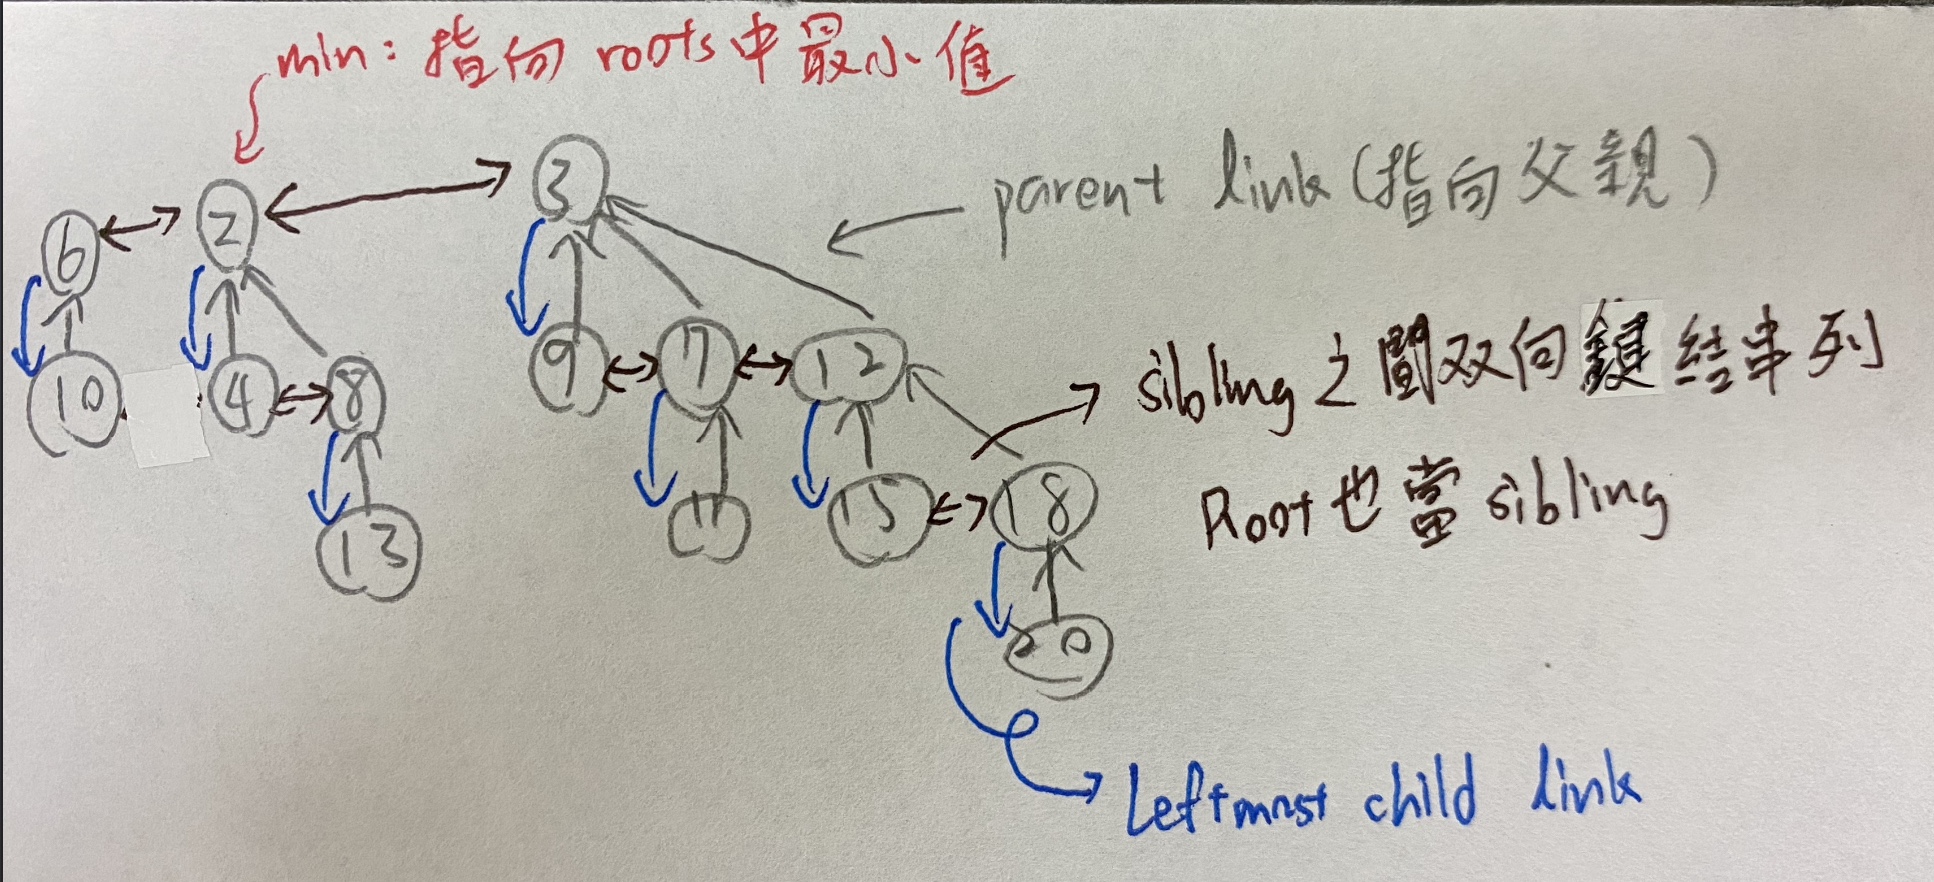 min: 指向 roots 中最小值
3
parent link (指向父親)
6
2
9
7
12
sibling 之間双向鏈結串列
10
4
8
11
15
18
Root 也當 sibling
13
20
Leftmost child link